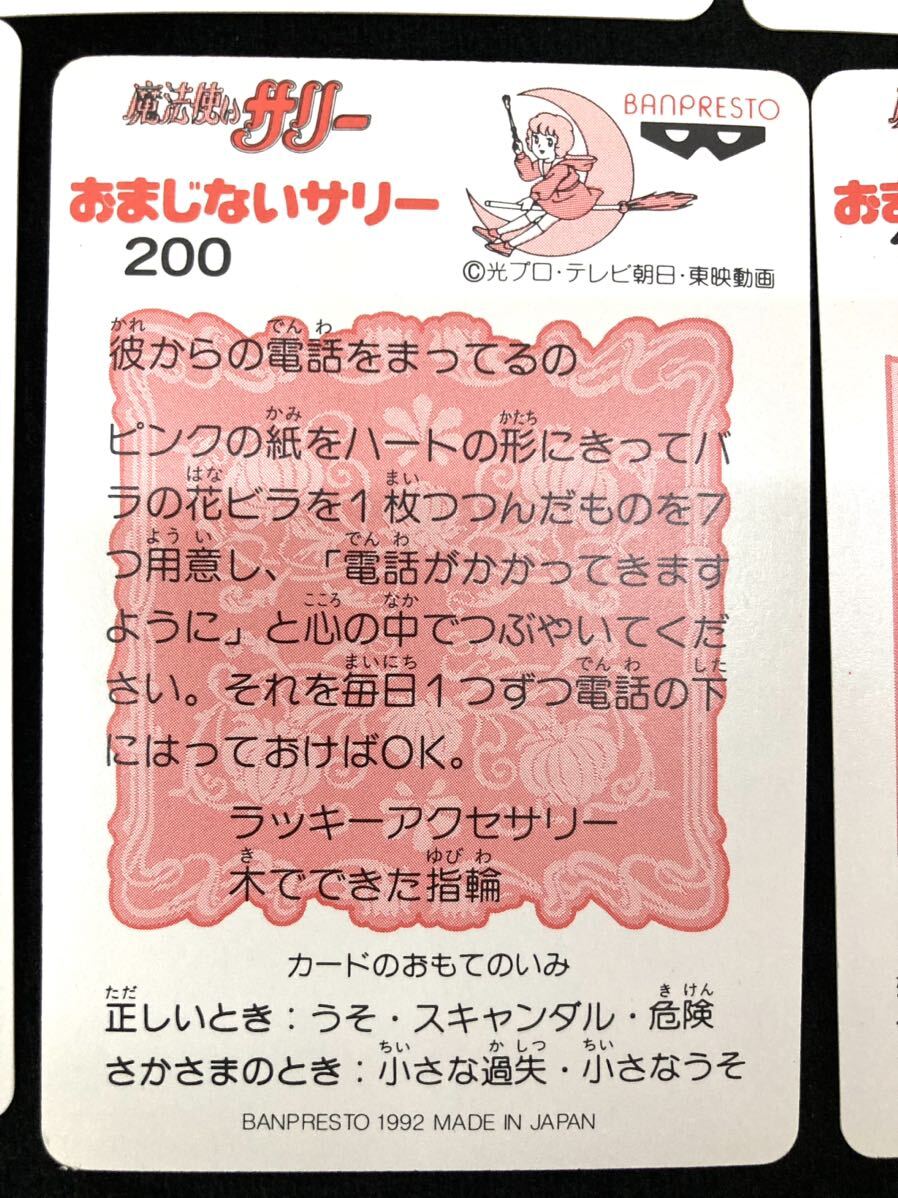 魔法使いサリー
BANPRESTO
おまじないサリー
200
©光プロ・テレビ朝日・東映動画
かれ でんわ
彼からの電話をまってるの
かみ かたち
ピンクの紙をハートの形にきってバ
はな まい
ラの花ビラを1枚つつんだものを7
ようい でんわ
つ用意し、「電話がかかってきます
こころ なか
ように」と心の中でつぶやいてくだ
まいにち でんわ した
さい。それを毎日1つずつ電話の下
にはっておけばOK。
ラッキーアクセサリー
き ゆびわ
木でできた指輪
カードのおもてのいみ
ただ きけん
正しいとき:うそ・スキャンダル・危険
ちい かしつ ちい
さかさまのとき:小さな過失・小さなうそ
BANPRESTO 1992 MADE IN JAPAN